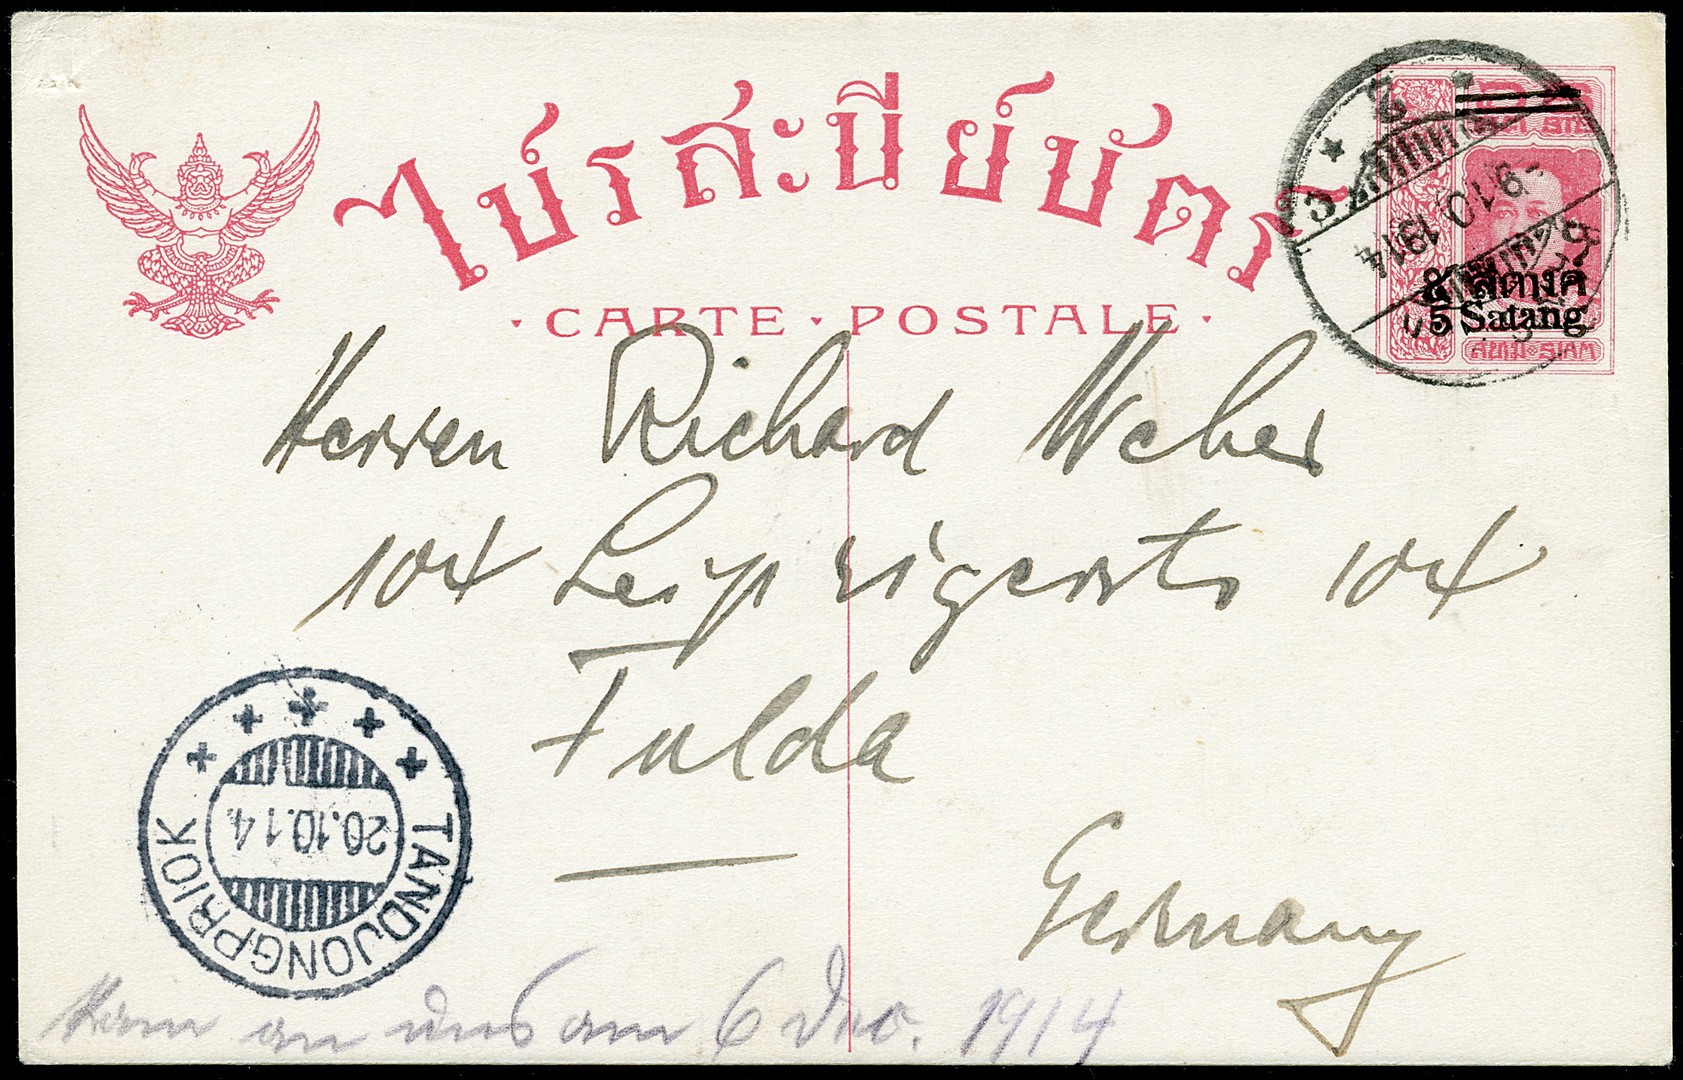 ไปรสะนียบัตร
· CARTE · POSTALE ·
๕ สตางค์
5 Satang
สยาม · SIAM
-9.10.1914
Herren Richard Weber
104 Leipzigerstr 104
Fulda
Germany
TANDJONGPRIOK
20.10.14
am 6 Dec. 1914